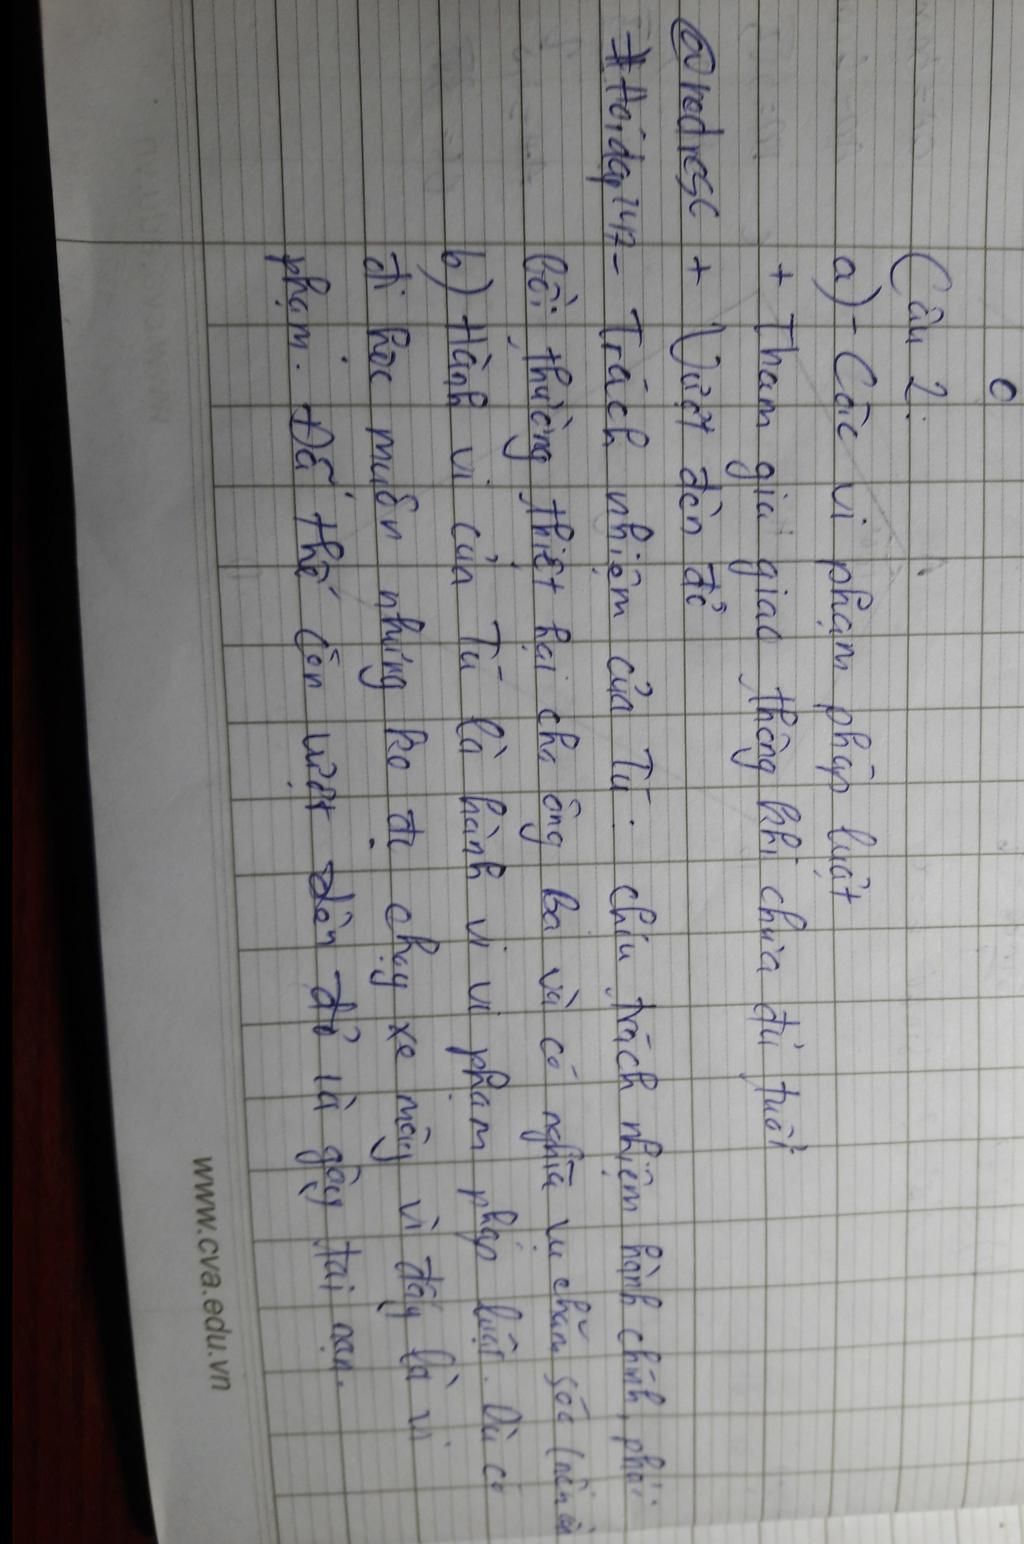 Câu 2:
a) - Các vi phạm pháp luật
+ Tham gia giao thông khi chưa đủ tuổi
@redresc + Vượt đèn đỏ
#Hoidap247 - Trách nhiệm của Tú: chịu trách nhiệm hành chính, phải
bồi thường thiệt hại cho ông Ba và có nghĩa vụ chăm sóc (nếu
b) Hành vi của Tú là hành vi vi phạm pháp luật. Dù có
đi học muộn nhưng ko đc chạy xe máy vì đấy là vi
phạm. Đã thế còn vượt đèn đỏ và gây tai nạn.
www.cva.edu.vn